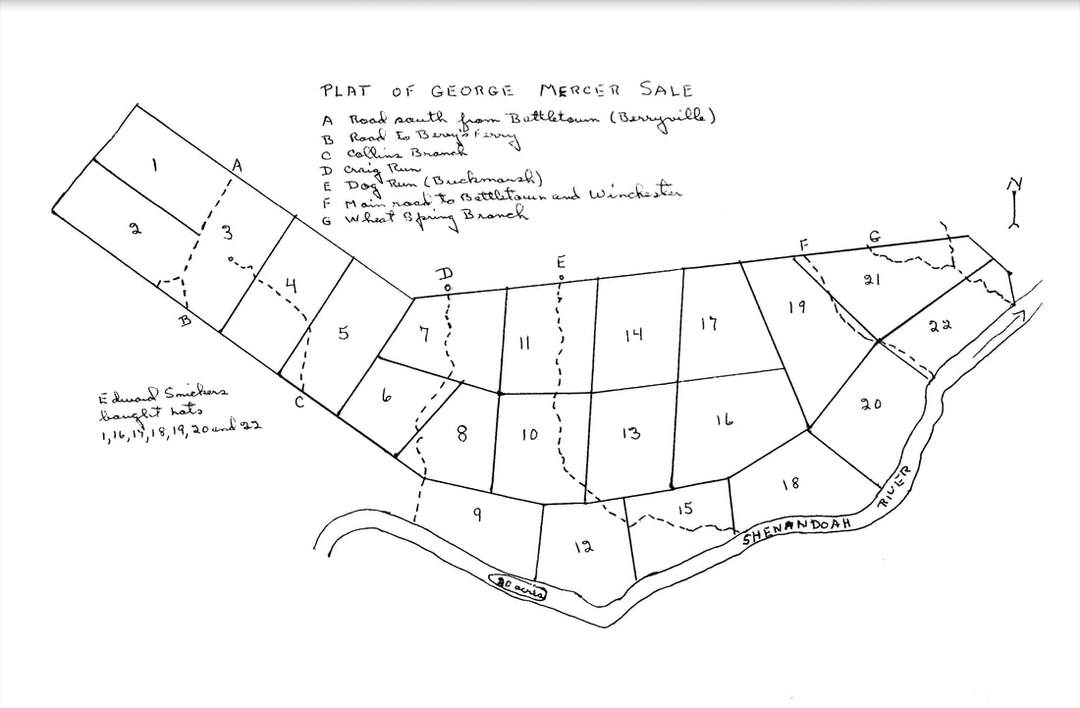 PLAT OF GEORGE MERCER SALE
A Road south from Battletown (Berryville)
B Road to Berry's Ferry
C Collins Branch
D Craig Run
E Dog Run (Buckmarsh)
F Main road to Battletown and Winchester
G Wheat Spring Branch
N
A
1
2
3
4
B
5
C
D
7
6
8
9
E
11
10
14
13
12
17
16
15
18
F
19
G
21
22
20
Edward Smickers
bought Lots
1, 16, 17, 18, 19, 20 and 22
20 acres
SHENANDOAH RIVER